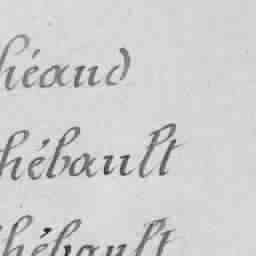 héaud
hébault
hébault